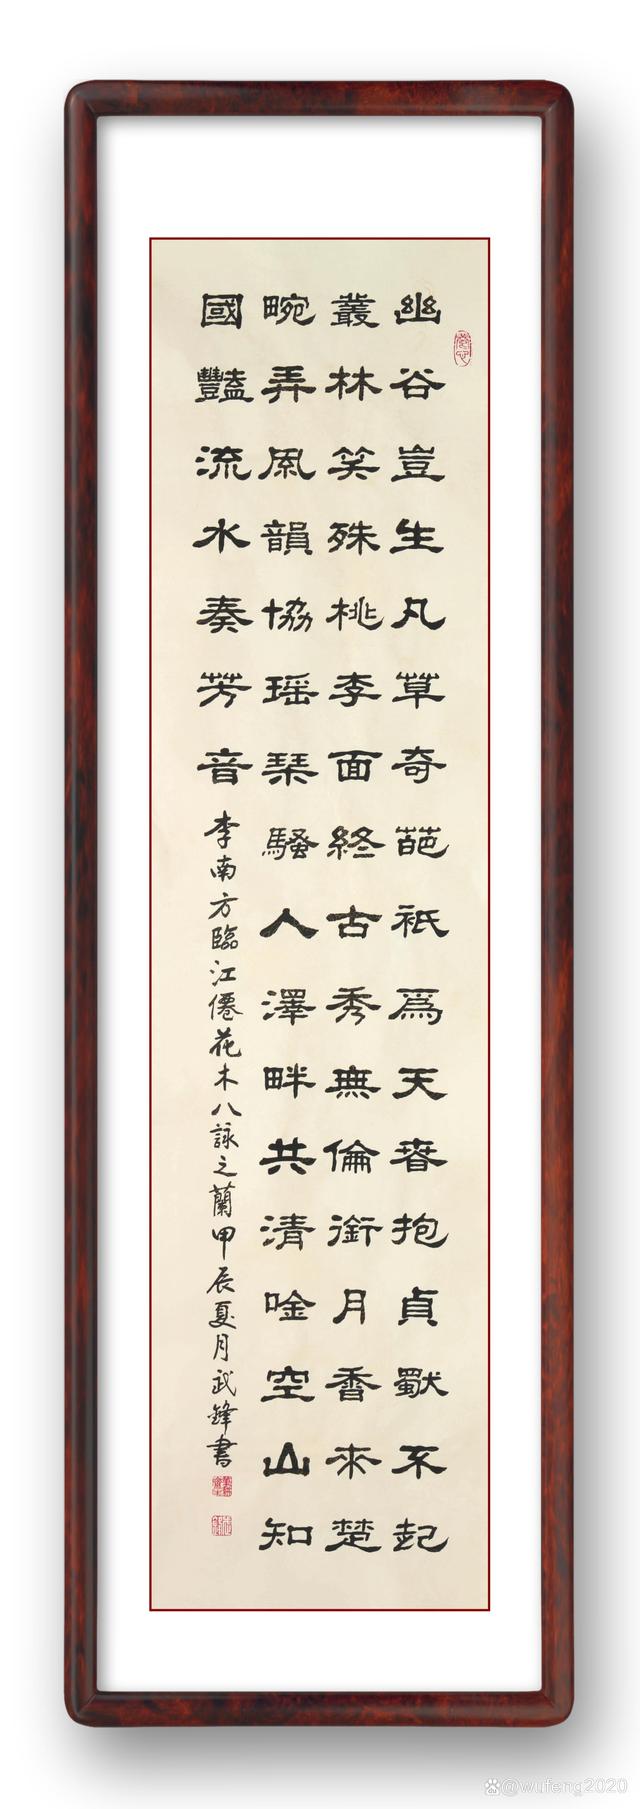 幽谷豈生凡草奇葩祇爲天春抱貞默不起
叢林笑殊桃李面終古秀無倫銜月香來楚
畹弄風韻協瑶琹騷人澤畔共清唫空山知
國豔流水奏芳音
李南方臨江僊花木八詠之蘭甲辰夏月武鋒書
@wufeng2020